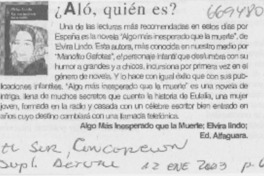 ¿Aló, quién es?
669480
Una de las lecturas más recomendadas en estos días por
España es la novela "Algo más inesperado que la muerte", de
Elvira Lindo. Esta autora, más conocida en nuestro medio por
"Manolito Gafotas", el personaje infantil que deslumbra con su
humor a grandes y a chicos, incursiona por primera vez en el
género de novela. Y lo hace con igual éxito que con sus pub-
licaciones infantiles. "Algo más inesperado que la muerte" es una novela de
intriga, llena de muchos secretos que cuenta la historia de Eulalia, una mujer
joven, famosa en la radio y casada con un célebre escritor bien entrado en
años cuyo destino cambiará con una llamada telefónica.
Algo Más Inesperado que la Muerte; Elvira lindo;
Ed. Alfaguara.
El SUR, Concepción
Supl. 12 ENE 2003 p. 6